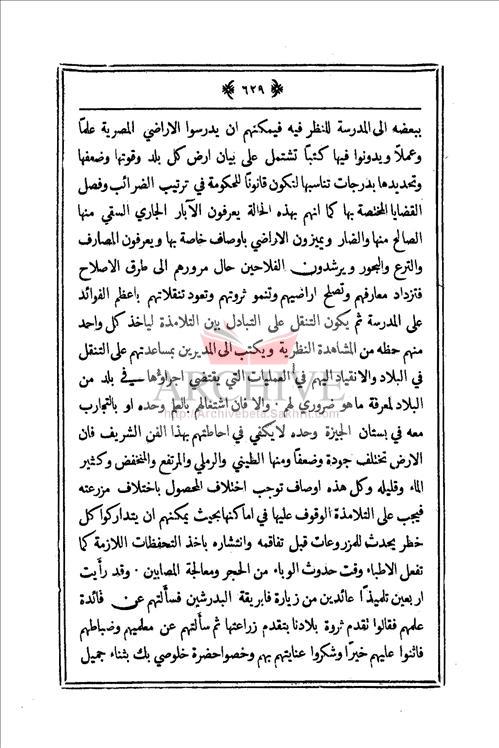 ٦٢٩
ببعضه الى المدرسة للنظر فيه فيمكنهم ان يدرسوا الاراضي المصرية علمًا
وعملاً ويدونوا فيها كتبًا تشتمل على بيان ارض كل بلد وقوتها وضعفها
وتحديدها بدرجات تناسبها لتكون قانونًا للحكومة في ترتيب الضرائب وفصل
القضايا المختصة بها كما انهم بهذه الحالة يعرفون الآبار الجاري السقي منها
الصالح منها والضار ويميزون الاراضي باوصاف خاصة بها ويعرفون المصارف
والترع والبحور ويرشدون الفلاحين حال مرورهم الى طرق الاصلاح
فتزداد معارفهم وتصلح اراضيهم وتنمو ثروتهم وتعود تنقلاتهم باعظم الفوائد
على المدرسة ثم يكون التنقل على التبادل بين التلامذة لياخذ كل واحد
منهم حظه من المشاهدة النظرية ويكتب الى المديرين بمساعدتهم على التنقل
في البلاد والانقياد اليهم في العمليات التي يقتضي اجراؤها في بلد من
البلاد لمعرفة ما هو ضروري لهم . والا فان اشتغالهم بالعلم وحده او بالتجارب
معه في بستان الجيزة وحده لا يكفي في احاطتهم بهذا الفن الشريف فان
الارض تختلف جودة وضعفًا ومنها الطيني والرملي والمرتفع والمنخفض وكثير
الماء وقليله وكل هذه اوصاف توجب اختلاف المحصول باختلاف مزرعته
فيجب على التلامذة الوقوف عليها في اماكنها بحيث يمكنهم ان يتداركوا كل
خطر يحدث للمزروعات قبل تفاقمه وانتشاره باخذ التحفظات اللازمة كما
تفعل الاطباء وقت حدوث الوباء من الحجر ومعالجة المصابين . وقد رأيت
اربعين تلميذًا عائدين من زيارة فابريقة البدرشين فسألتهم عن فائدة
علمهم فقالوا تقدم ثروة بلادنا بتقدم زراعتها ثم سألتهم عن معلميهم وضباطهم
فاثنوا عليهم خيرًا وشكروا عنايتهم بهم وخصوا حضرة خلوصي بك بثناء جميل
ARCHIVE
http://Archivebeta.Sakhrit.com